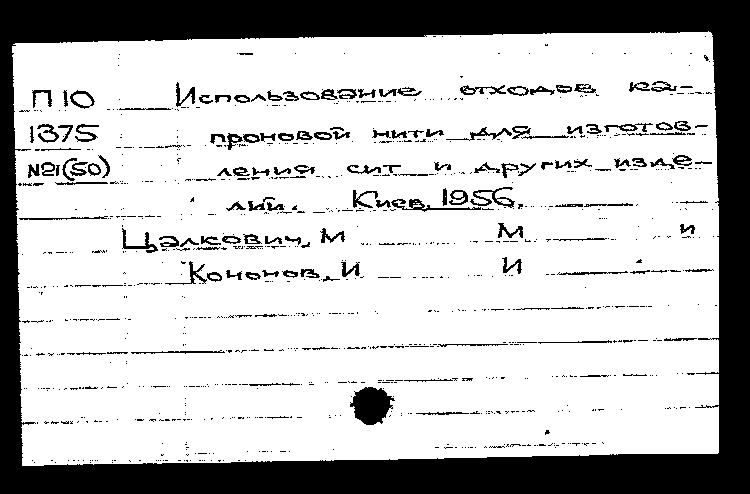 П 10 Использование отходов ка-
1375 проновой нити для изготов-
№1(50) ления сит и других изде-
лий. Киев, 1956.
Цалкович, М М и
Кононов, И И